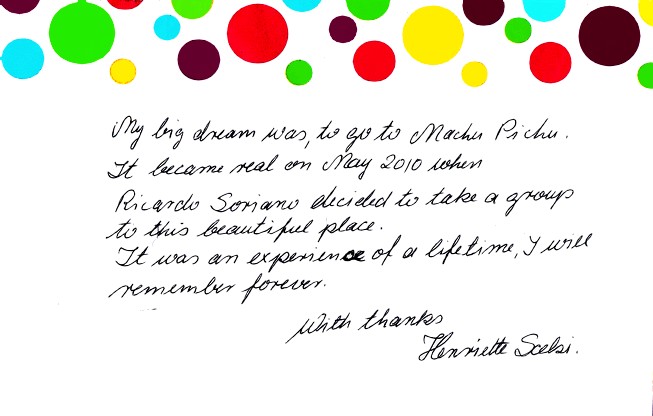 My big dream was, to go to Machu Pichu.
It became real on May 2010 when
Ricardo Soriano decided to take a group
to this beautiful place.
It was an experience of a lifetime, I will
remember forever.
With thanks
Henriette Scelsi.